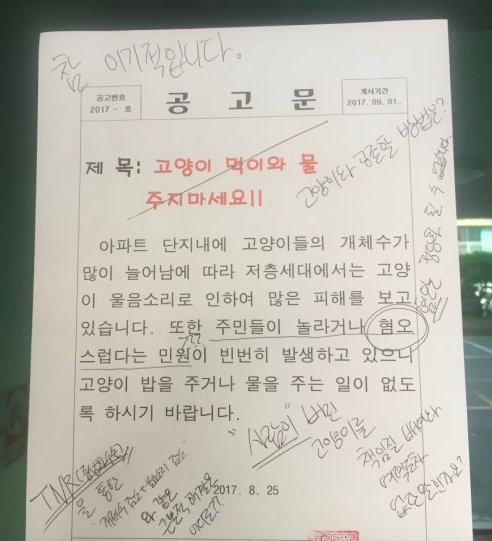 참 이기적입니다.
공고번호
2017 - 호
공 고 문
게시기간
2017. 09. 01..
제 목: 고양이 먹이와 물
주지마세요!!
고양이와 공존할 방법은?
혐오는 정당화 될 수 없습니다
아파트 단지내에 고양이들의 개체수가
많이 늘어남에 따라 저층세대에서는 고양
이 울음소리로 인하여 많은 피해를 보고
있습니다. 또한 주민들이 놀라거나 혐오
??
스럽다는 민원이 빈번히 발생하고 있으니
고양이 밥을 주거나 물을 주는 일이 없도
록 하시기 바랍니다.
"사람이" 버린
고양이를
책임질 배려
없으신가요?
TNR(중성화수술)
을 통한
"개체수 감소+울음소리 감소"
와 같은
근본적 해결은
어디로??
2017. 8. 25